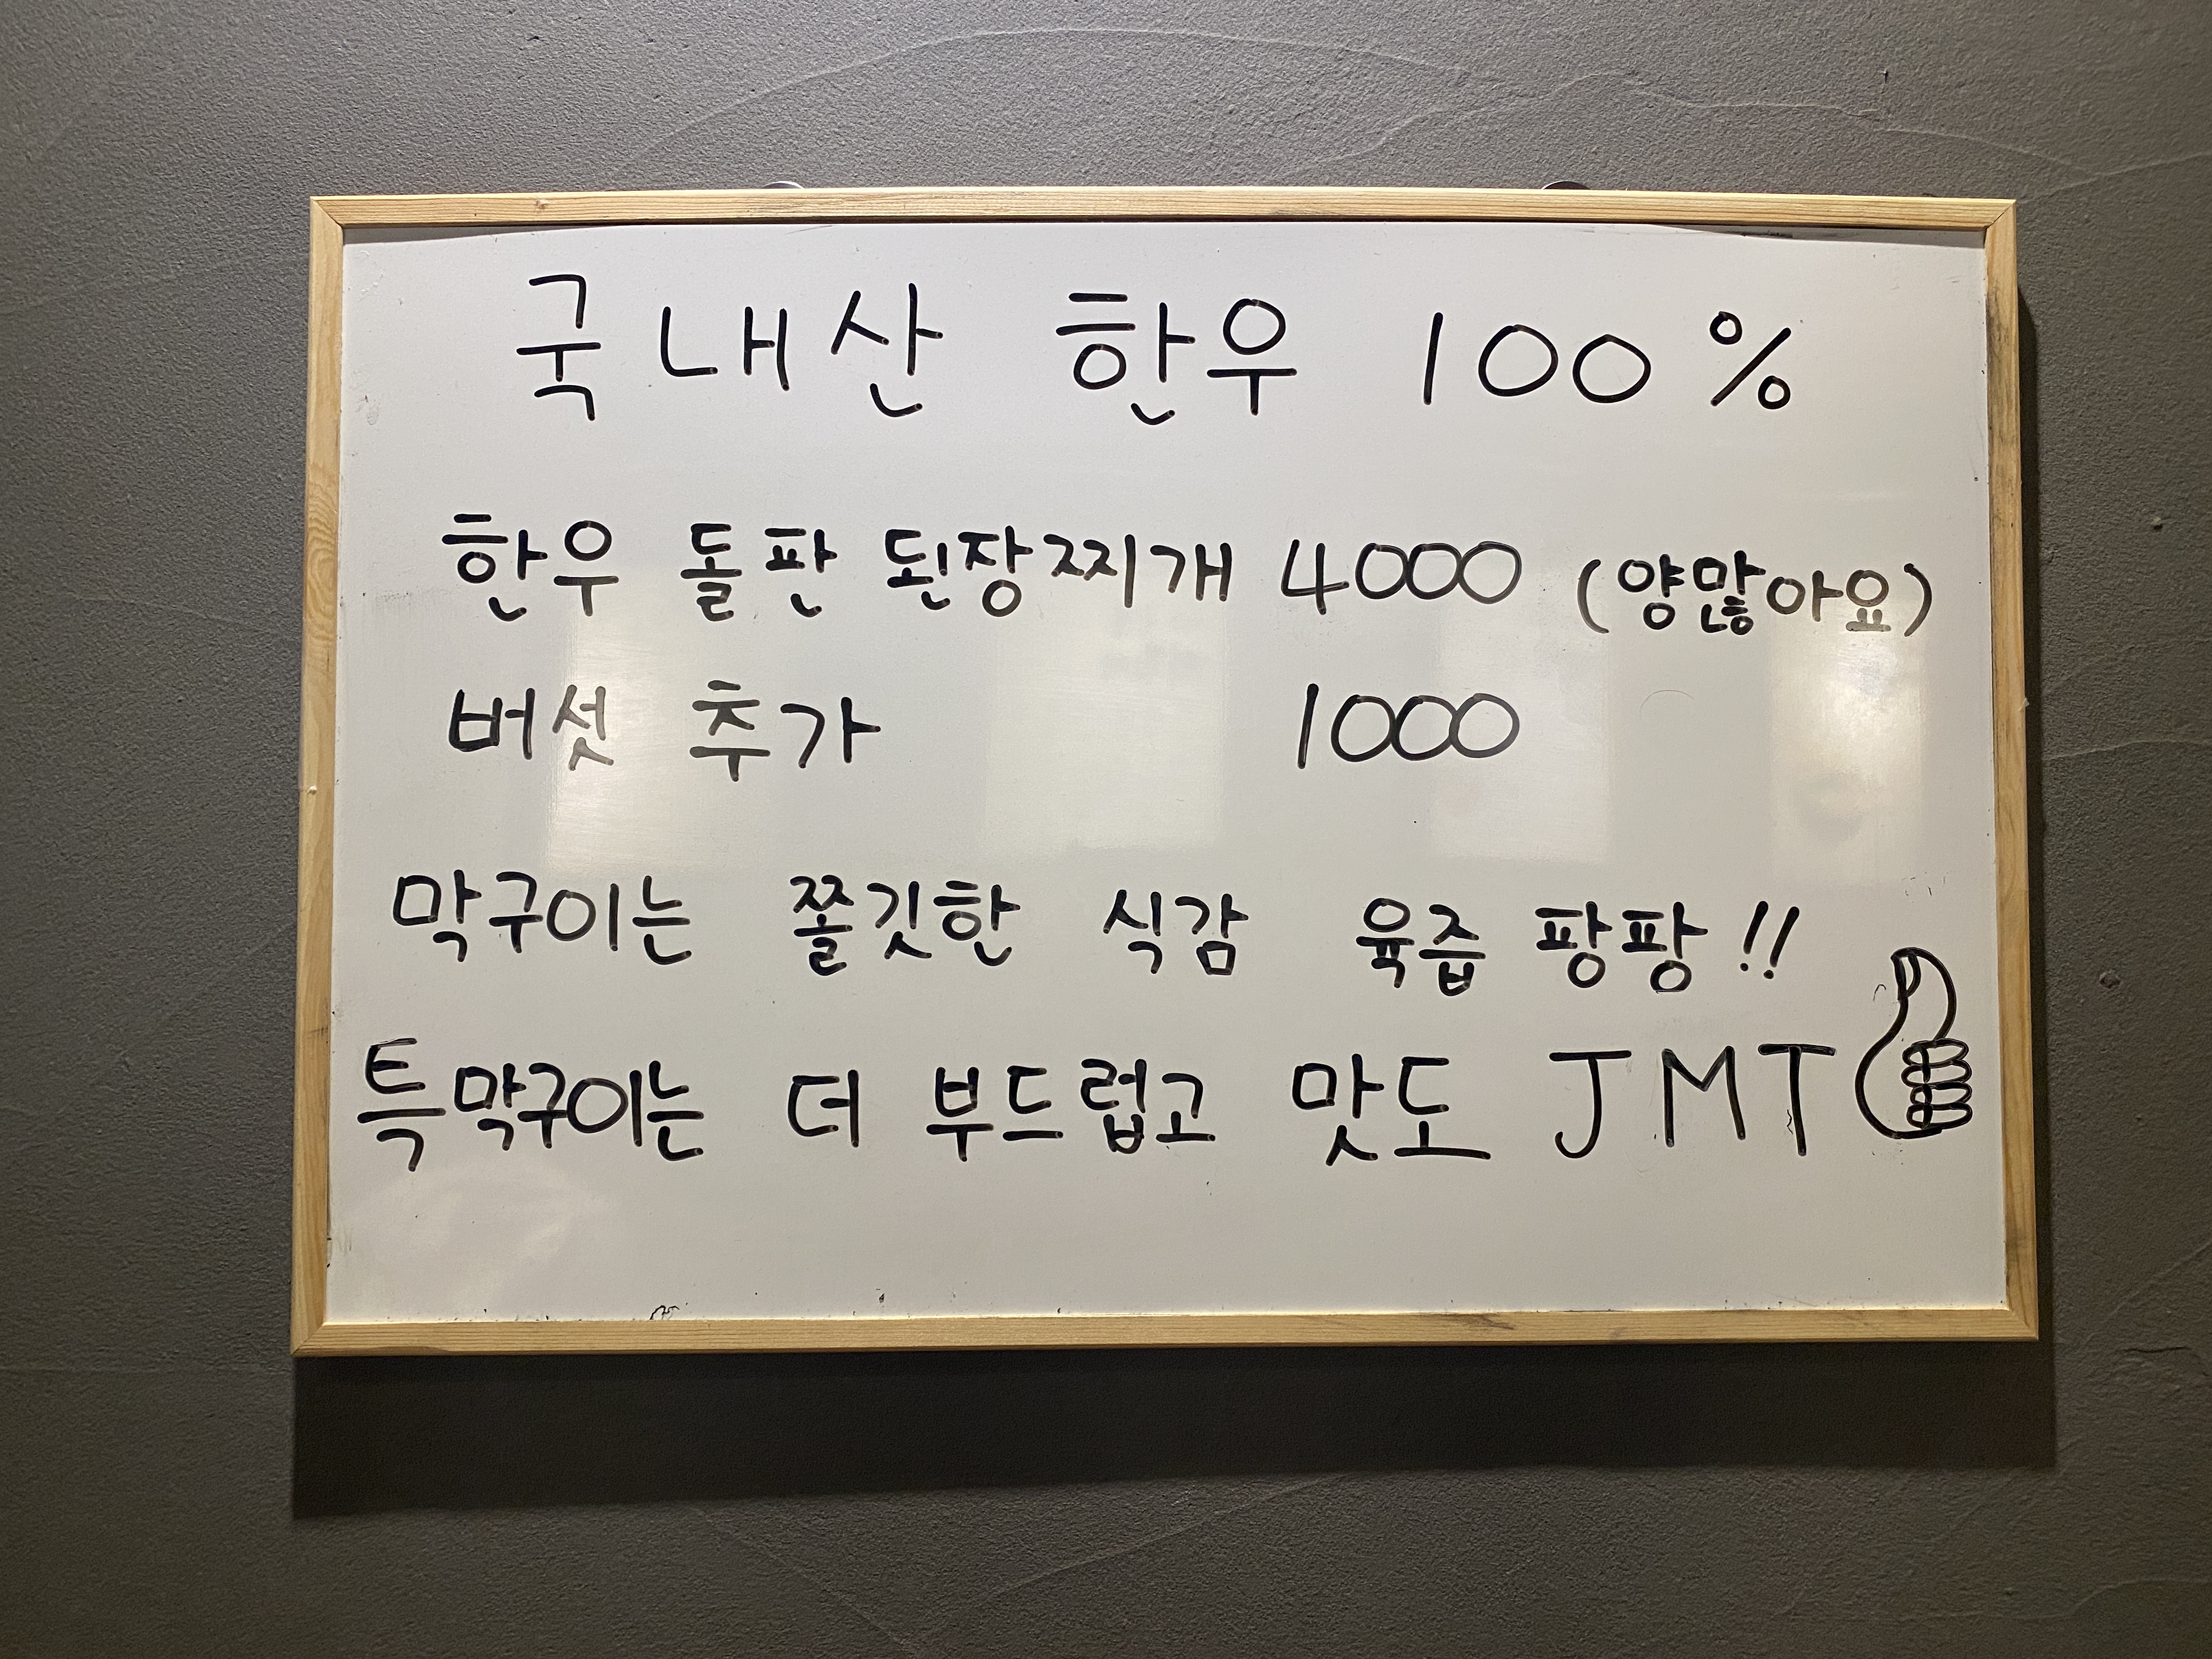 국내산 한우 100%
한우 돌판 된장찌개 4000 (양많아요)
버섯 추가 1000
막구이는 쫄깃한 식감 육즙 팡팡!!
특막구이는 더 부드럽고 맛도 JMT